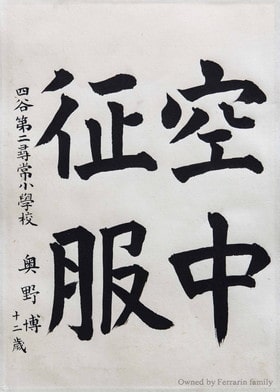 空中
征服
四谷第二尋常小學校
奥野博
十二歳
Owned by Ferrario family